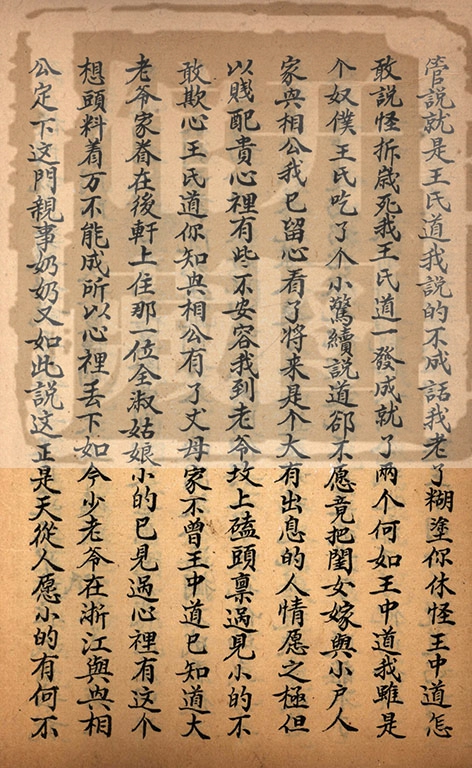 管說就是王氏道我說的不成話我老了糊塗你休怪王中道怎
敢說怪折歳死我王氏道一發成就了兩个何如王中道我雖是
个奴僕王氏吃了个小驚續說道郤不愿竟把閨女嫁與小户人
家與相公我已留心看了將来是个大有出息的人情愿之極但
以賤配貴心裡有些不安容我到老爷坟上磕頭禀過見小的不
敢欺心王氏道你知與相公有了丈母家不曾王中道已知道大
老爷家眷在後軒上住那一位全淑姑娘小的已見過心裡有这个
想頭料着万不能成所以心裡丢下如今少老爷在浙江與與相
公定下这門親事奶奶又如此説这正是天從人愿小的有何不